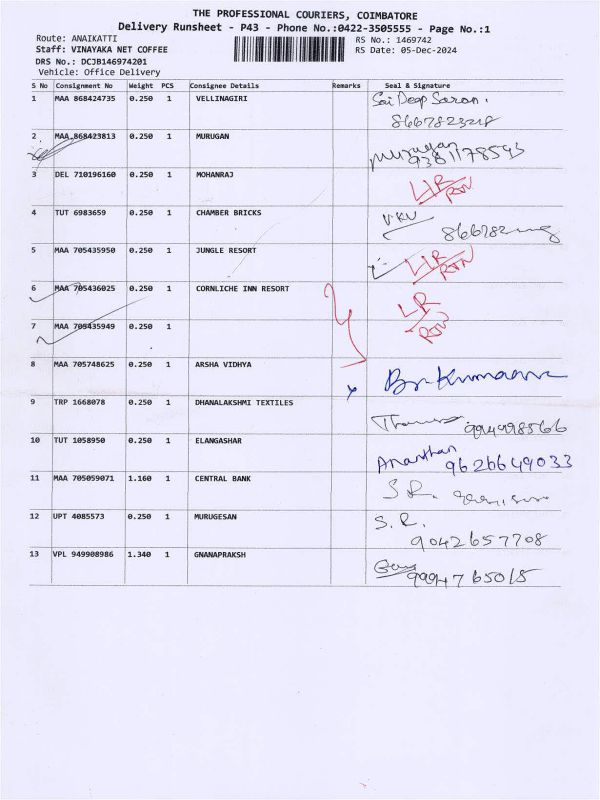 THE PROFESSIONAL COURIERS, COIMBATORE
Delivery Runsheet - P43 - Phone No.:0422-3505555 - Page No.:1
Route: ANAIKATTI
RS No.: 1469742
Staff: VINAYAKA NET COFFEE
RS Date: 05-Dec-2024
DRS No.: DCJB146974201
Vehicle: Office Delivery
S No Consignment No Weight PCS Consignee Details Remarks Seal & Signature
1 MAA 868424735 0.250 1 VELLINAGIRI Sai Deep Saran.
2 MAA 868423813 0.250 1 MURUGAN Murugan
9381178593
3 DEL 710196160 0.250 1 MOHANRAJ LIR
RTN
4 TUT 6983659 0.250 1 CHAMBER BRICKS VKV
5 MAA 705435950 0.250 1 JUNGLE RESORT LIR
RTN
6 MAA 705436025 0.250 1 CORNLICHE INN RESORT LR
RTN
7 MAA 705435949 0.250 1
8 MAA 705748625 0.250 1 ARSHA VIDHYA
9 TRP 1668078 0.250 1 DHANALAKSHMI TEXTILES 9949498566
10 TUT 1058950 0.250 1 ELANGASHAR Ananthan
9626649033
11 MAA 705059071 1.160 1 CENTRAL BANK S.R.
12 UPT 4085573 0.250 1 MURUGESAN S.R.
9042657708
13 VPL 949908986 1.340 1 GNANAPRAKSH 9994765015